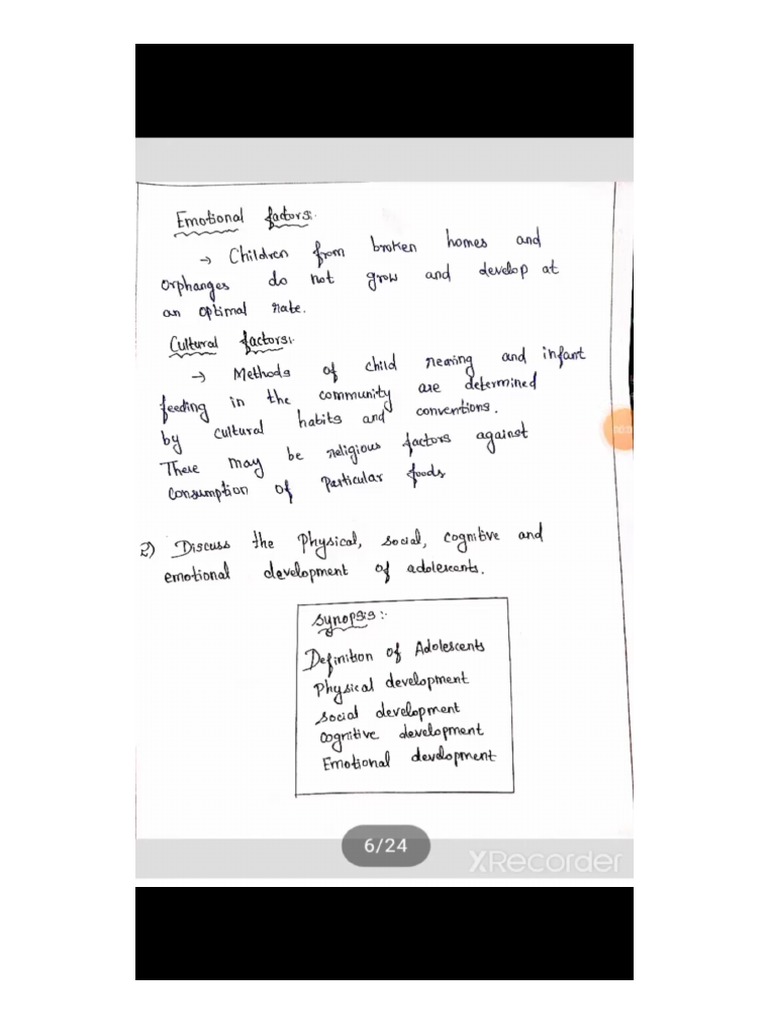 Emotional factors:-
→ Children from broken homes and
orphanges do not grow and develop at
an optimal rate.
Cultural factors:-
→ Methods of child rearing and infant
feeding in the community are determined
by cultural habits and conventions.
There may be religious factors against
consumption of particular foods
2) Discuss the Physical, social, cognitive and
emotional development of adolescents.
Synopsis:-
Definition of Adolescents
Physical development
Social development
Cognitive development
Emotional development
6/24
XRecorder